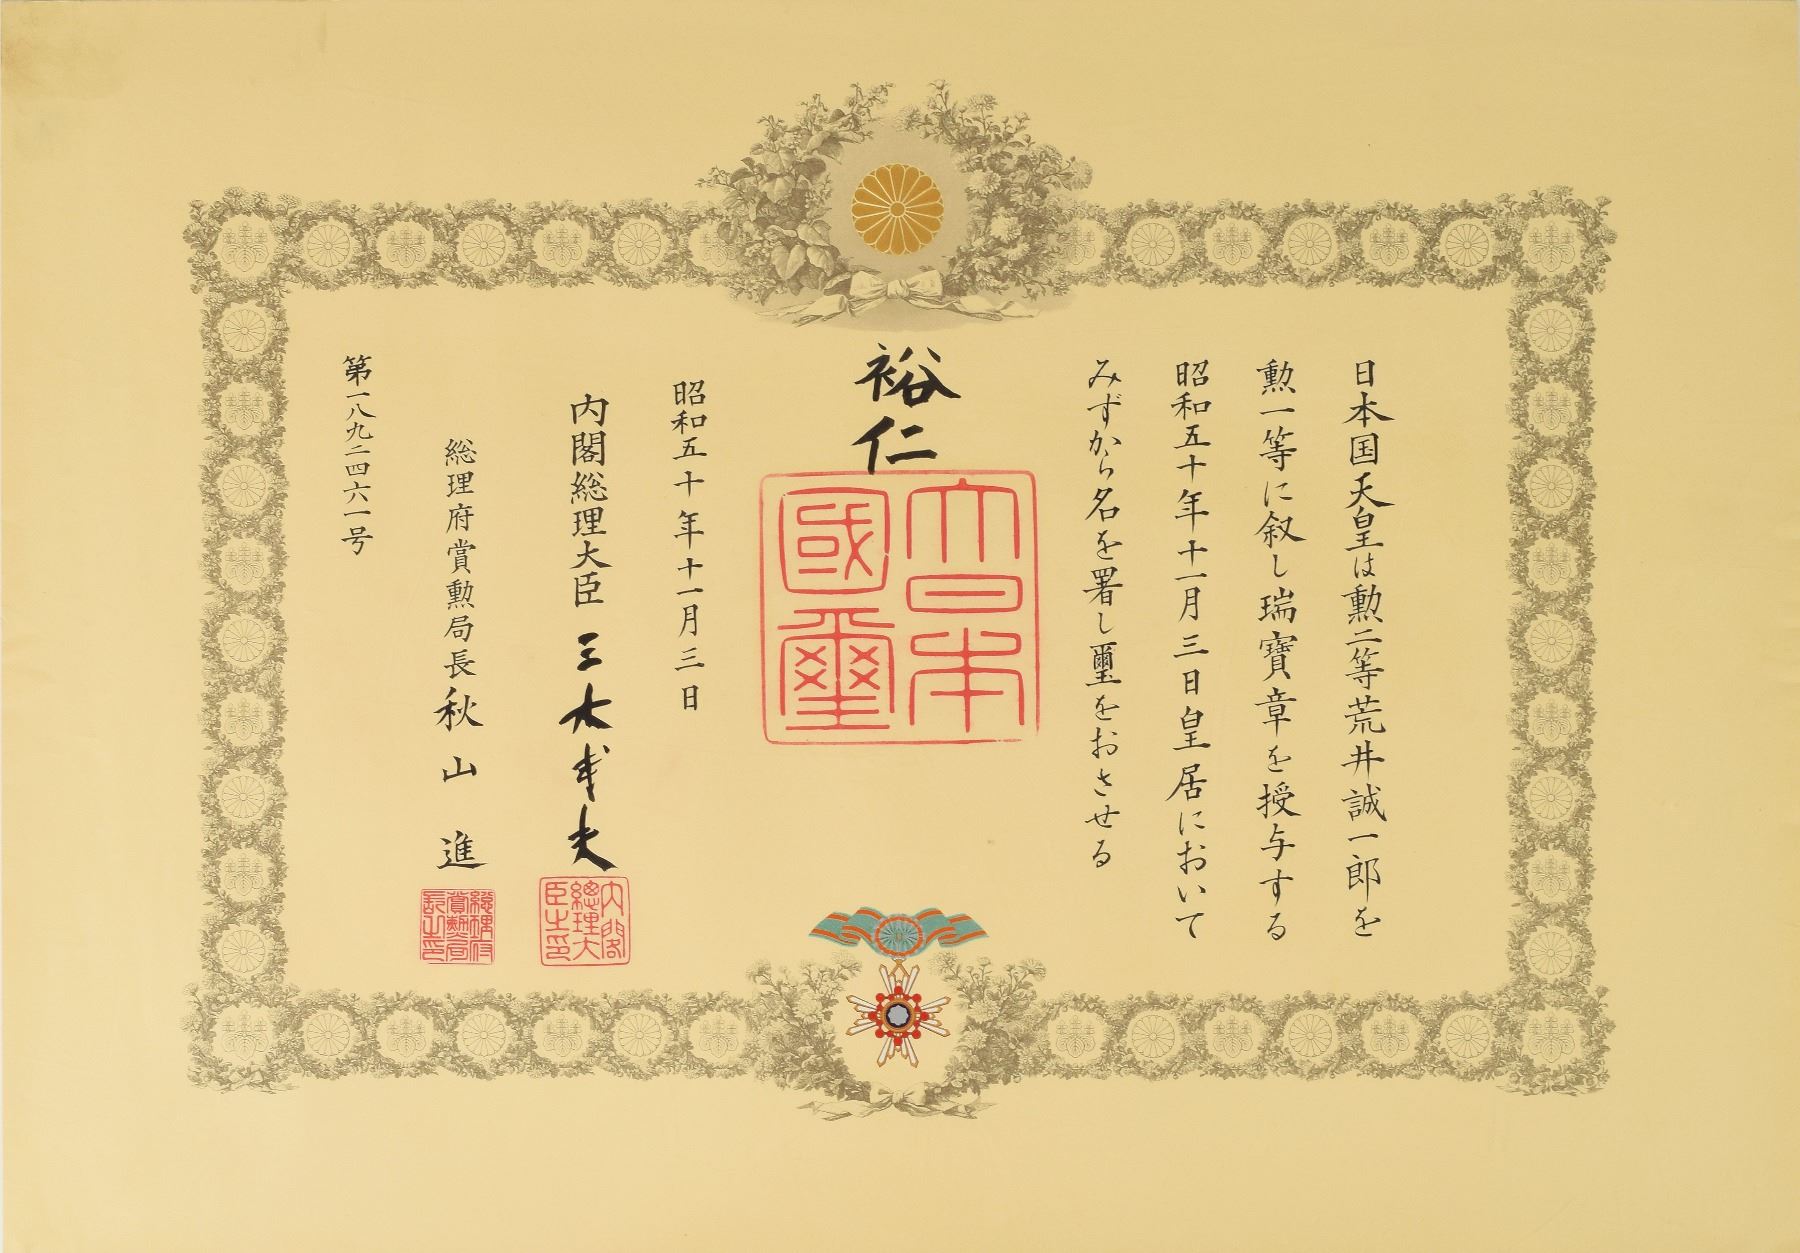 日本国天皇は勲二等荒井誠一郎を
勲一等に叙し瑞寶章を授与する
昭和五十年十一月三日皇居において
みずから名を署し璽をおさせる
裕仁
大日本
國璽
昭和五十年十一月三日
内閣総理大臣 三木武夫
内閣
總理大
臣之印
総理府賞勲局長 秋山 進
總理府
賞勲局
長之印
第一八九二四六一号